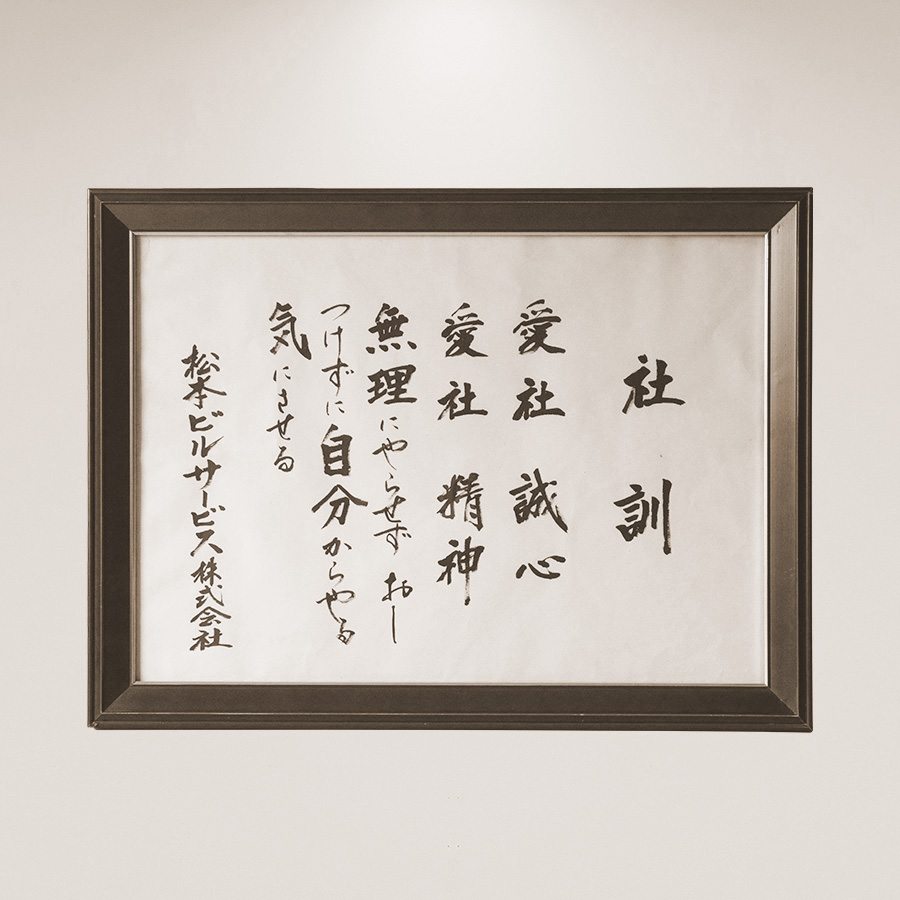 社訓
愛社 誠心
愛社 精神
無理にやらせず おし
つけずに自分からやる
気にさせる
松本ビルサービス株式会社